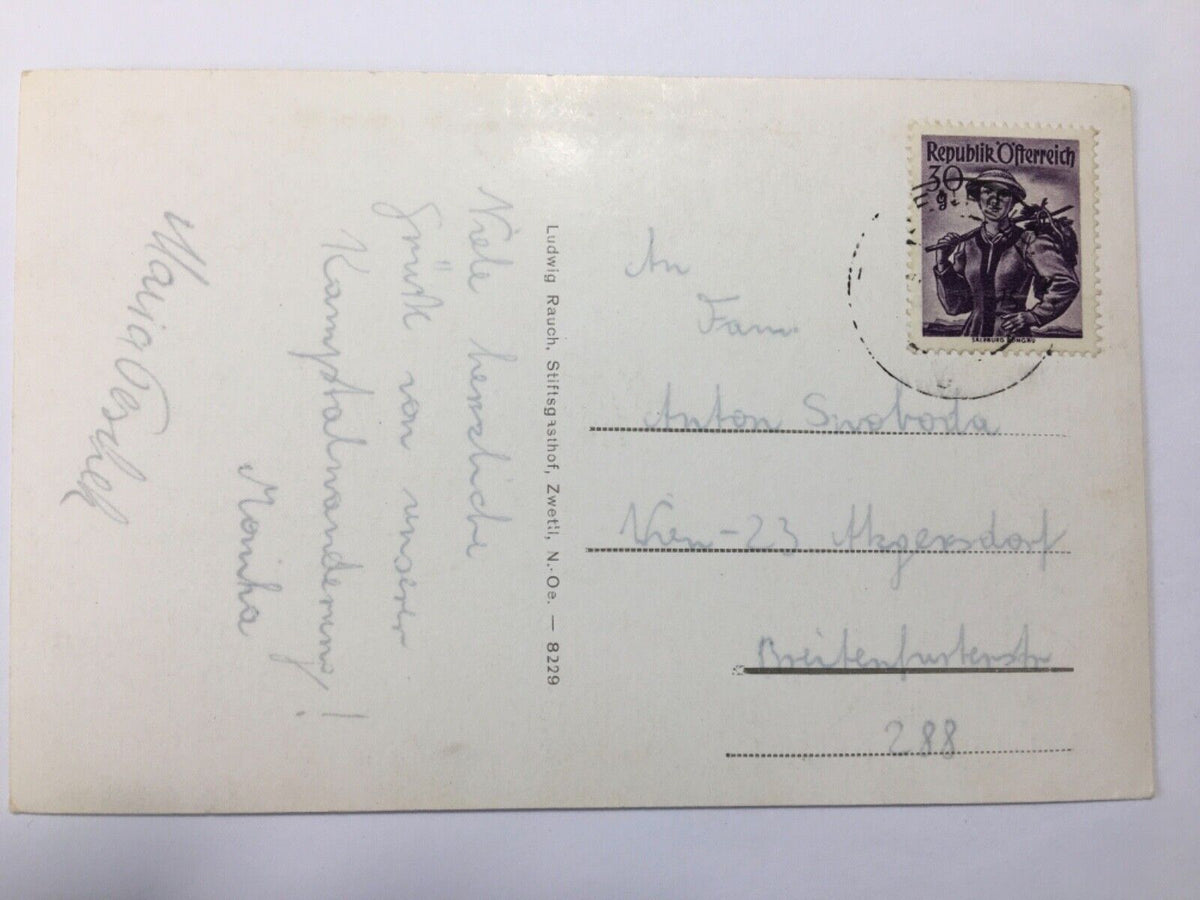 Viele herzliche
Grüße von unserer
Kamptalwanderung!
Monika
Maria
Ludwig Rauch, Stiftsgasthof, Zwettl, N.-Oe. — 8229
Republik Österreich
30
g
SALZBURG, PONGAU
An
Fam.
Anton Swoboda
Wien-23 Atzgersdorf
Breitenfurterstr
288